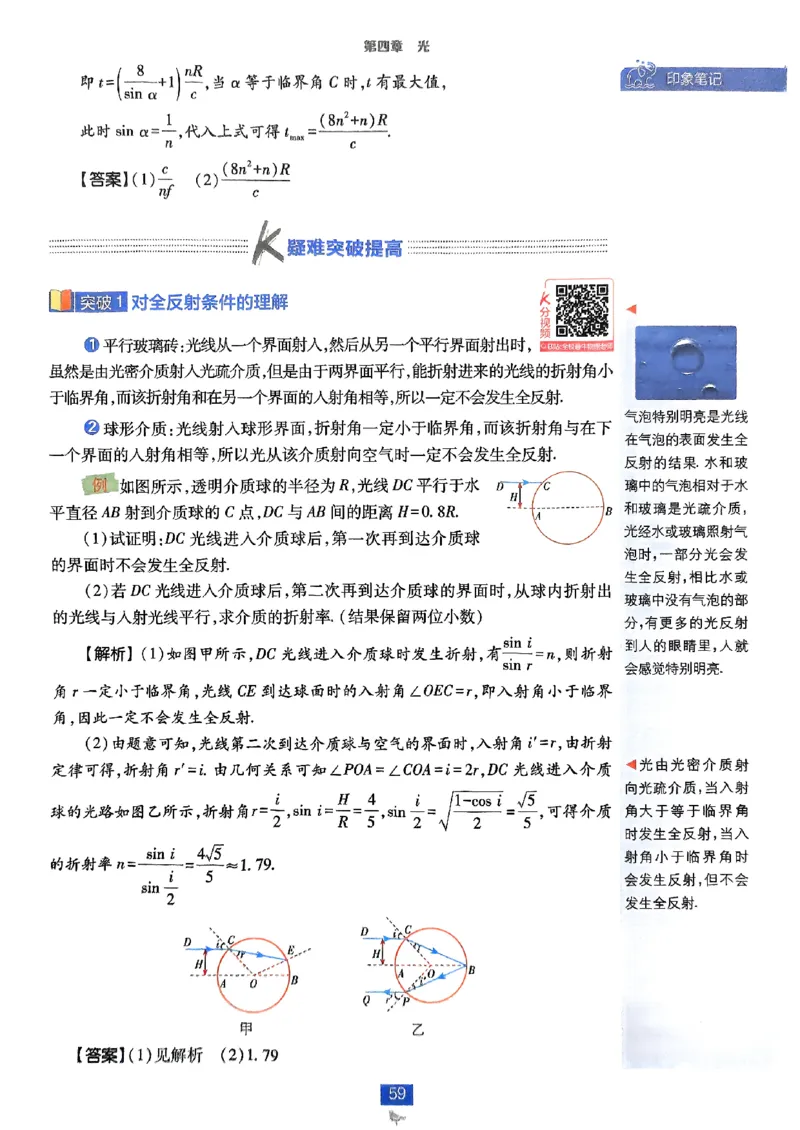 第四章 光
即 t=(8/sin α+1)nR/c,当 α 等于临界角 C 时,t 有最大值,
此时 sin α=1/n,代入上式可得 tmax=(8n²+n)R/c.
【答案】(1)c/nf (2)(8n²+n)R/c
K疑难突破提高
突破1 对全反射条件的理解
K分视频
❶平行玻璃砖:光线从一个界面射入,然后从另一个平行界面射出时,
虽然是由光密介质射入光疏介质,但是由于两界面平行,能折射进来的光线的折射角小
于临界角,而该折射角和在另一个界面的入射角相等,所以一定不会发生全反射.
❷球形介质:光线射入球形界面,折射角一定小于临界角,而该折射角与在下
一个界面的入射角相等,所以光从该介质射向空气时一定不会发生全反射.
例 如图所示,透明介质球的半径为 R,光线 DC 平行于水
平直径 AB 射到介质球的 C 点,DC 与 AB 间的距离 H=0.8R.
(1)试证明:DC 光线进入介质球后,第一次再到达介质球
的界面时不会发生全反射.
D C
H
A B
(2)若 DC 光线进入介质球后,第二次再到达介质球的界面时,从球内折射出
的光线与入射光线平行,求介质的折射率.(结果保留两位小数)
【解析】(1)如图甲所示,DC 光线进入介质球时发生折射,有sin i/sin r=n,则折射
角 r 一定小于临界角,光线 CE 到达球面时的入射角∠OEC=r,即入射角小于临界
角,因此一定不会发生全反射.
(2)由题意可知,光线第二次到达介质球与空气的界面时,入射角 i′=r,由折射
定律可得,折射角 r′=i. 由几何关系可知∠POA=∠COA=i=2r,DC 光线进入介质
球的光路如图乙所示,折射角r=i/2,sin i=H/R=4/5,sin i/2=√((1-cos i)/2)=√5/5,可得介质
的折射率 n=sin i/(sin i/2)=4√5/5≈1.79.
D i C r E
H
A O B
甲
D i C r
H
A O B
i′
Q r′ P
乙
【答案】(1)见解析 (2)1.79
59
印象笔记
气泡特别明亮是光线
在气泡的表面发生全
反射的结果. 水和玻
璃中的气泡相对于水
和玻璃是光疏介质,
光经水或玻璃照射气
泡时,一部分光会发
生全反射,相比水或
玻璃中没有气泡的部
分,有更多的光反射
到人的眼睛里,人就
会感觉特别明亮.
光由光密介质射
向光疏介质,当入射
角大于等于临界角
时发生全反射,当入
射角小于临界角时
会发生反射,但不会
发生全反射.